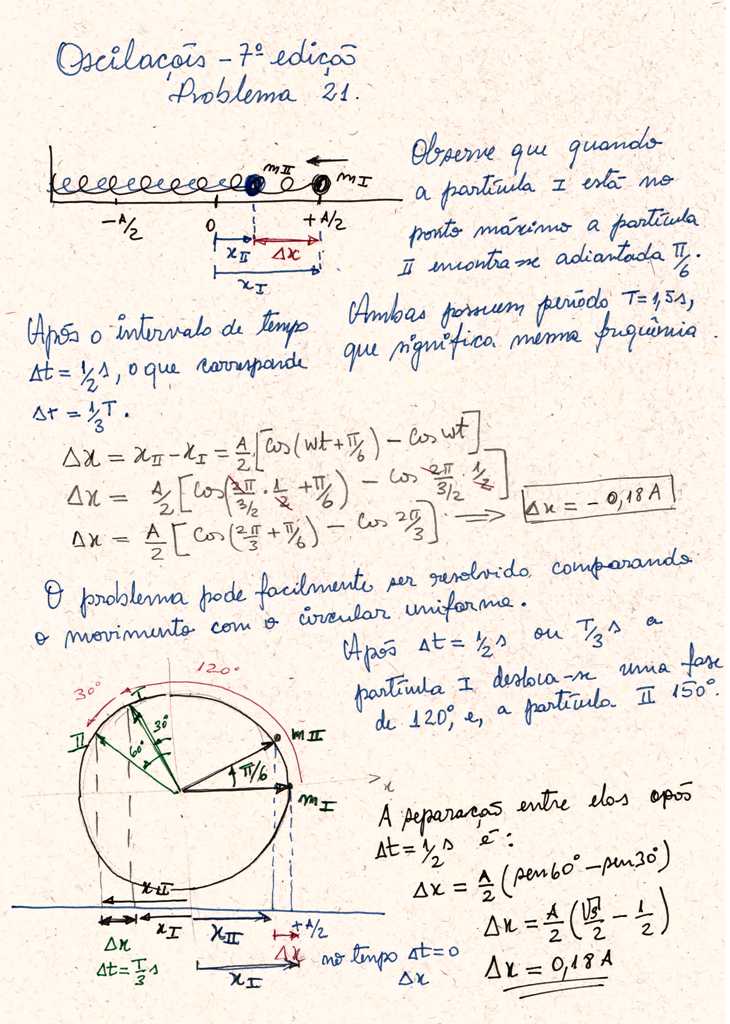 Oscilações - 7ª edição
Problema 21.
Observe que quando
a partícula I está no
ponto máximo a partícula
II encontra-se adiantada π/6.
Ambas possuem período T=1,5s,
que significa mesma frequência.
mII
mI
-A/2
0
+A/2
xII
Δx
xI
Após o intervalo de tempo
Δt = 1/2 s, o que corresponde
Δt = 1/3 T.
Δx = xII - xI = A/2 [cos(wt + π/6) - cos wt]
Δx = A/2 [cos(2π/3/2 · 1/2 + π/6) - cos 2π/3/2 · 1/2]
Δx = A/2 [cos(2π/3 + π/6) - cos 2π/3] ⟹ Δx = - 0,18 A
O problema pode facilmente ser resolvido comparando
o movimento com o circular uniforme.
Após Δt = 1/2 s ou T/3 s a
partícula I desloca-se uma fase
de 120°, e, a partícula II 150°.
120°
30°
I
II
30°
60°
mII
π/6
mI
x
A separação entre elas após
Δt = 1/2 s é:
Δx = A/2 (sen 60° - sen 30°)
Δx = A/2 (√3/2 - 1/2)
Δx = 0,18 A
xII
xI
xII
+A/2
Δx
Δt = T/3 s
Δx
xI
no tempo Δt = 0
Δx